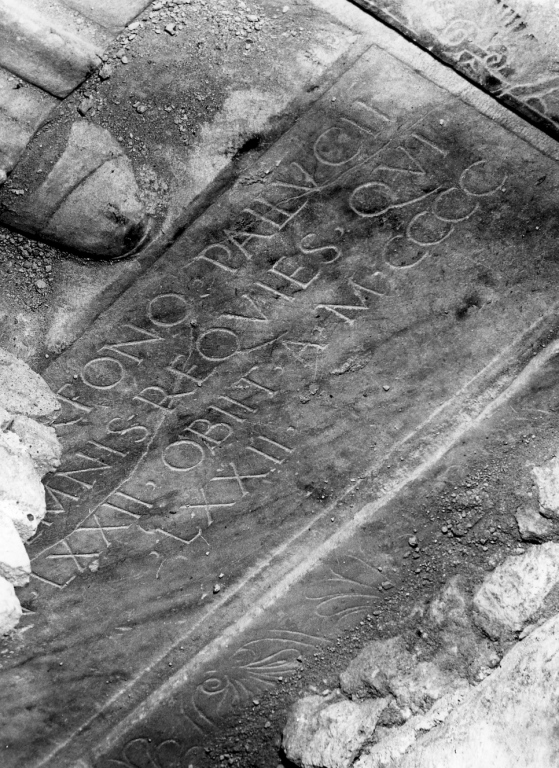 FONO · PALLVCII
MNIS REQVIES · QVI
LXXII · OBIIT · A · M · CCCC
· LXXII ·